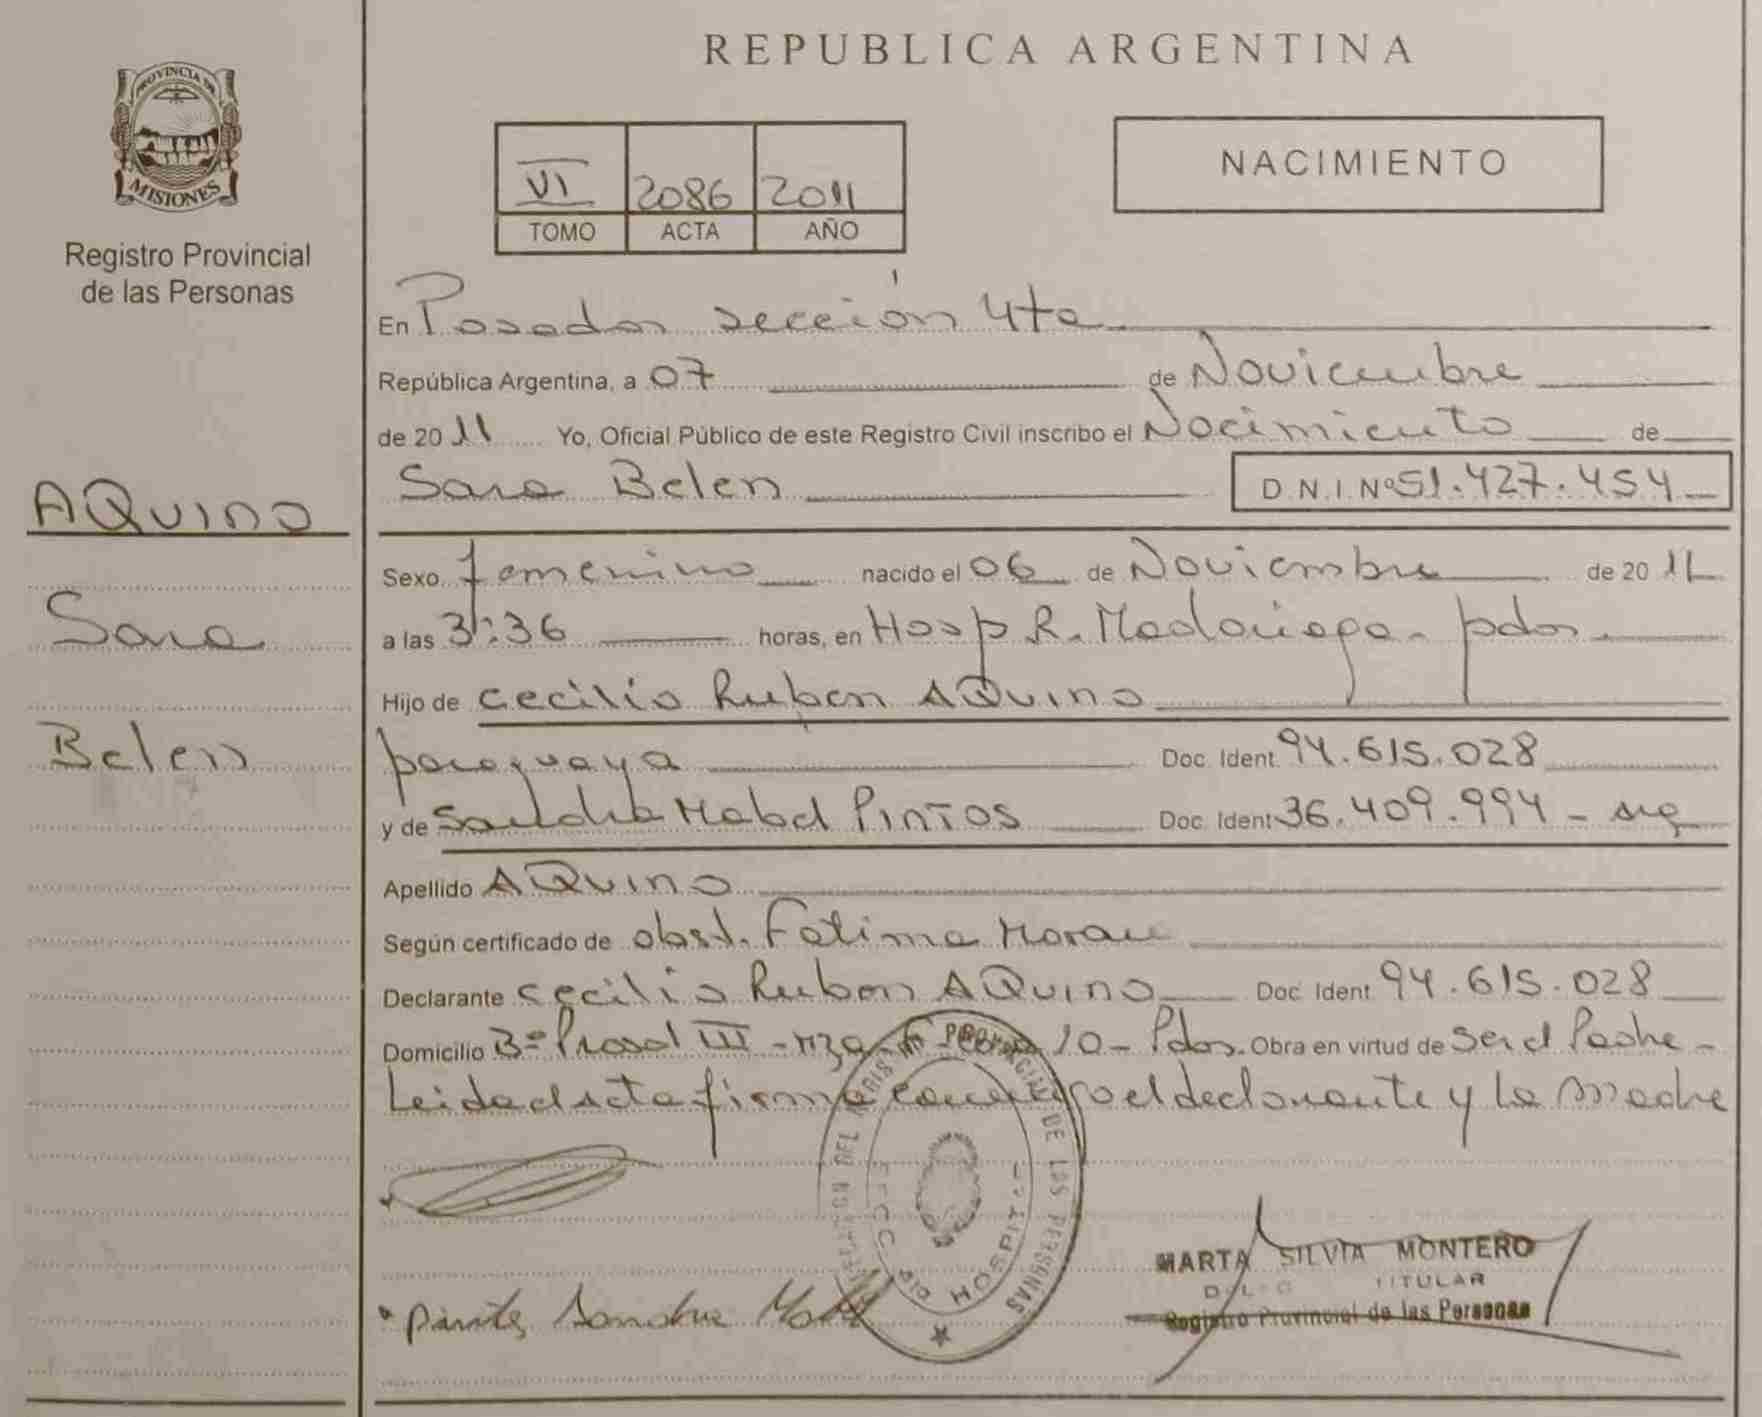 REPUBLICA ARGENTINA
PROVINCIA DE
MISIONES
Registro Provincial
de las Personas
VI 2086 2011
TOMO ACTA AÑO
NACIMIENTO
En Posadas sección 4ta
República Argentina, a 07 de Noviembre
de 2011 Yo, Oficial Público de este Registro Civil inscribo el Nacimiento de
Sara Belen D.N.I. Nº 51.427.454
AQUINO
Sara
Belen
Sexo femenino nacido el 06 de Noviembre de 2011
a las 3:36 horas, en Hosp R. Madariaga - pdas.
Hijo de cecilio Ruben AQUINO
paraguaya Doc. Ident. 94.615.028
y de Sandra Mabel PINTOS Doc. Ident. 36.409.994 - arg
Apellido AQUINO
Según certificado de obst. Fatima Moran
Declarante cecilio Ruben AQUINO Doc. Ident. 94.615.028
Domicilio Bº Prosol III - mza. 10 - Pdas. Obra en virtud de ser el Padre -
Leida el acta firma conmigo el declarante y la madre
REGISTRO PROVINCIAL DE LAS PERSONAS
HOSPITAL
Sandra
MARTA SILVIA MONTERO
TITULAR
Registro Provincial de las Personas